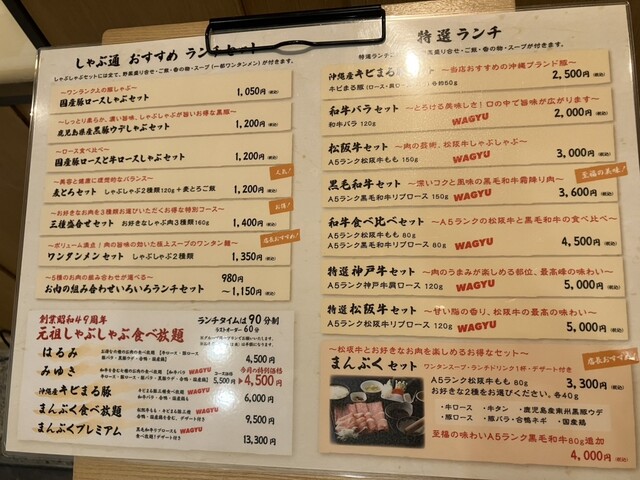 しゃぶ通 おすすめ ランチセット
しゃぶしゃぶセットには全て、野菜盛り合せ・ご飯・香の物・スープ（一部ワンタンメン）が付きます。
〜ワンランク上の豚しゃぶ〜
国産豚ロースしゃぶセット
1,050円(税込)
〜しっとり柔らか、濃い旨味、しゃぶしゃぶが旨いお得な黒豚〜
鹿児島県産黒豚ウデしゃぶセット
1,200円(税込)
〜ロース食べ比べ〜
国産豚ロースと牛ロースしゃぶセット
1,200円(税込)
人気!
〜美容と健康に理想的なバランス〜
麦とろセット しゃぶしゃぶ2種類120g＋麦とろご飯
1,200円(税込)
お得!
〜お好きなお肉を3種類お選びいただくお得な特別コース〜
三種盛合せセット お好きなしゃぶ肉3種類160g
1,400円(税込)
店長おすすめ!
〜ボリューム満点！肉の旨味の効いた極上スープのワンタン麺〜
ワンタンメンセット しゃぶしゃぶ2種類
1,350円(税込)
〜5種のお肉の組み合わせが選べる〜
お肉の組み合わせいろいろランチセット
980円
〜1,150円(税込)
創業昭和49周年
元祖しゃぶしゃぶ食べ放題
ランチタイムは90分制
ラストオーダー60分
はるみ
4,500円(税込)
みゆき
WAGYU
5,500円
今月の特別価格
4,500円(税込)
沖縄産キビまる豚
6,000円(税込)
まんぷく食べ放題
WAGYU
9,500円(税込)
まんぷくプレミアム
WAGYU
13,300円(税込)
特選ランチ
沖縄産キビまる豚セット 〜当店おすすめの沖縄ブランド豚〜
2,500円(税込)
和牛バラセット 〜とろける美味しさ！口の中で旨味が広がります〜
和牛バラ 120g WAGYU
2,000円(税込)
松阪牛セット 〜肉の芸術、松阪牛しゃぶしゃぶ〜
A5ランク松阪牛もも 150g WAGYU
3,000円(税込)
至福の美味!
黒毛和牛セット 〜深いコクと風味の黒毛和牛霜降り肉〜
A5ランク黒毛和牛リブロース 150g WAGYU
3,600円(税込)
和牛食べ比べセット 〜A5ランクの松阪牛と黒毛和牛の食べ比べ〜
A5ランク松阪牛もも 80g
A5ランク黒毛和牛リブロース 80g WAGYU
4,500円(税込)
特選神戸牛セット 〜肉のうまみが楽しめる部位、最高峰の味わい〜
WAGYU
5,000円(税込)
特選松阪牛セット 〜甘い脂の香り、松阪牛の最高の味わい〜
A5ランク松阪牛リブロース 120g WAGYU
5,000円(税込)
店長おすすめ!
〜松坂牛とお好きなお肉を楽しめるお得なセット〜
まんぷくセット ワンタンスープ・ランチドリンク1杯・デザート付き
A5ランク松阪牛もも 80g
お好きな2種をお選びください。各40g
3,300円(税込)
・牛ロース ・牛タン ・鹿児島産南州黒豚ウデ
・豚ロース ・豚バラ・合鴨ネギ ・国産鶏
至福の味わいA5ランク黒毛和牛80g追加
4,000円(税込)